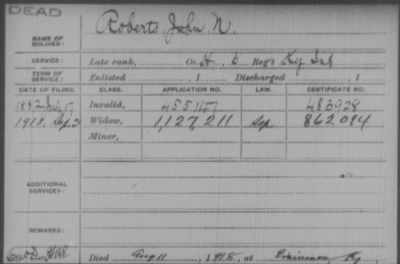 DEAD
Roberts, John N.
NAME OF SOLDIER:
SERVICE: Late rank, Co. H, 6 Reg't Ky Inf
TERM OF SERVICE: Enlisted , 1 Discharged , 1
DATE OF FILING. CLASS. APPLICATION NO. LAW. CERTIFICATE NO.
1882 July 17 Invalid, 455147 486928
1918, Sep 3 Widow, 1,127,211 Sep. 862094
Minor,
ADDITIONAL SERVICES:
REMARKS:
Died Aug 11, 1918, at Ky.